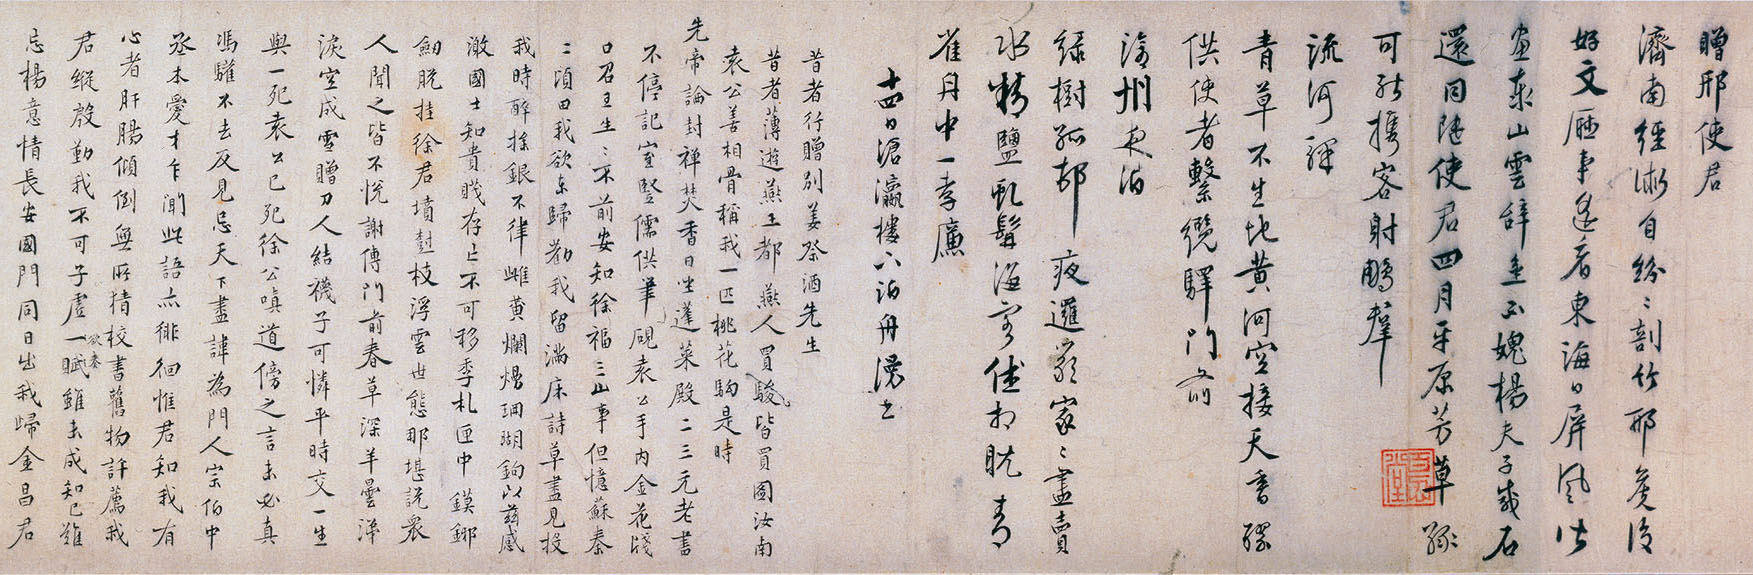 贈邢使君
濟南經術自紛〻剖竹邢襄復
好文歷事遙看東海日屏風皆
畫泰山雲辭金不媿楊夫子
還同陸使君四月平原芳草綠
可能攜客射鵰群
流河驛
青草不生地黃河空接天書郵
供使者繫纜驛門前
滄州夜泊
綠樹孤郵夜邏嚴家〻盡賣
水精鹽虬髯海客相眈青
雀舟中一孝廉
十四日滄瀛樓下泊舟漫書
昔者行贈別姜祭酒先生
昔者薄遊燕王都燕人買駿皆買圖汝南
袁公善相骨稱我一匹桃花駒是時
先帝論封禪焚香日坐蓬萊殿二三元老書
不停記室豎儒供筆硯袁公手內金花牋
口召王生〻不前安知徐福三山事但憶蘇秦
二頃田我欲東歸勸我留滿床詩草盡見投
我時醉捺銀不律雌黃爛熳珊瑚鉤以茲感
激國士知貴賤存亡不可移季札匣中鏌鋣
劍脫挂徐君墳樹枝浮雲世態那堪説衆
人聞之皆不悅謝傅門前春草深羊曇涕
淚空成雪贈刀人結襪子可憐平時交一生
與一死袁公已死徐公嗔道傍之言未必真
馮驩不去反見忌天下盡諱為門人宗伯中
丞本愛才乍聞此語亦徘徊惟君知我有
心者肝腸傾倒無所猜校書舊物許薦我
君縱殷勤我不可子虛一賦欲奏雖未成知己雖
忌楊意情長安國門同日出我歸金昌君